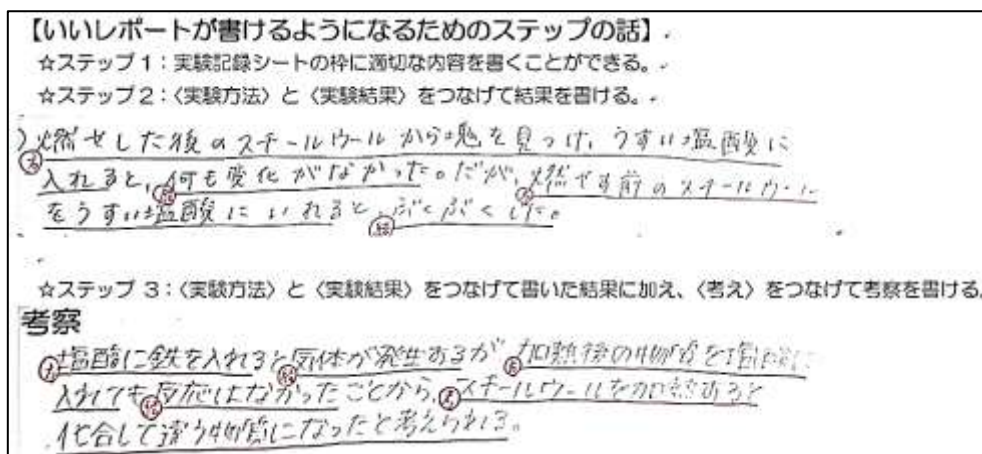 【いいレポートが書けるようになるためのステップの話】.
☆ステップ1:実験記録シートの枠に適切な内容を書くことができる。
☆ステップ2:〈実験方法〉と〈実験結果〉をつなげて結果を書ける。
燃せした後のスチールウールから塊を見つけ、うすい塩酸に
方
入れると、何も変化がなかった。だが、燃やす前のスチールウール
結 方
をうすい塩酸にいれると、ぶくぶくした。
結
☆ステップ 3:〈実験方法〉と〈実験結果〉をつなげて書いた結果に加え、〈考え〉をつなげて考察を書ける。
考察
塩酸に鉄を入れると気体が発生するが 加熱後の物質を塩酸に
方 結 方
入れても反応はなかったことから、スチールウールを加熱すると
結 考
化合して違う物質になったと考えられる。